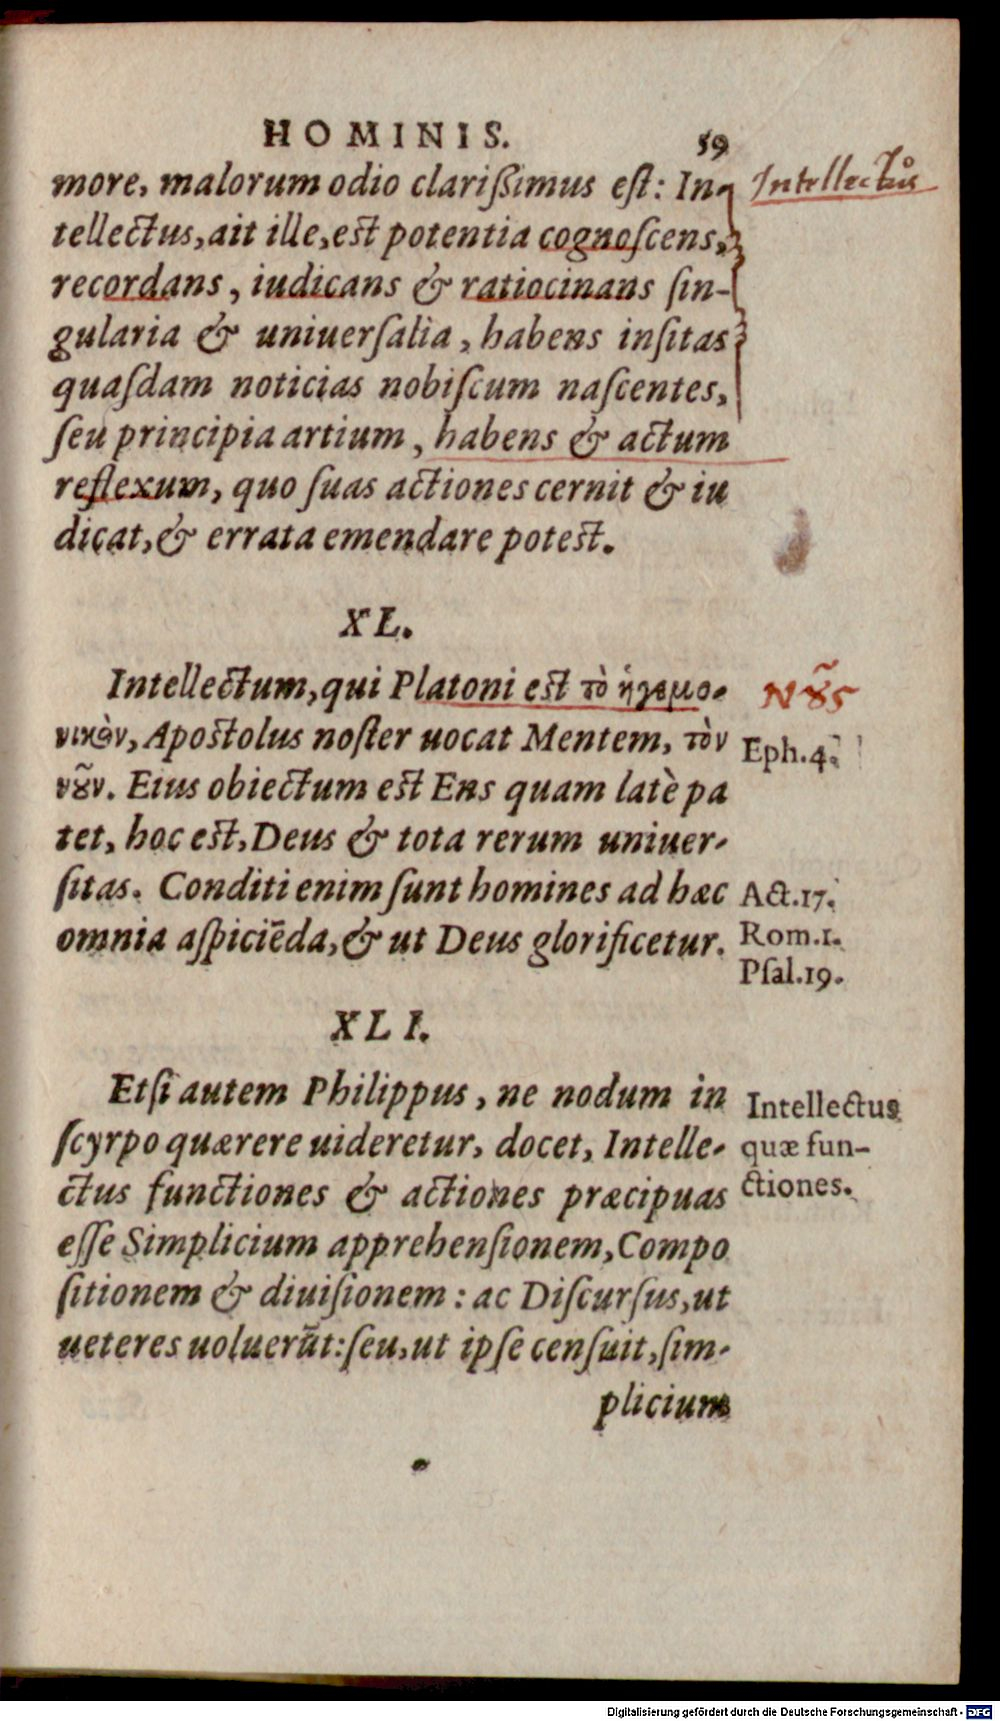 HOMINIS. 59
more, malorum odio clarißimus eſt: In-
tellectus, ait ille, est potentia cognoſcens,
recordans, iudicans & ratiocinans ſin-
gularia & uniuerſalia, habens inſitas
quaſdam noticias nobiſcum naſcentes,
ſeu principia artium, habens & actum
reflexum, quo ſuas actiones cernit & iu
dicat, & errata emendare potest.
Intellectus
XL.
Intellectum, qui Platoni est τὸ ἡγεμο-
νικὸν, Apostolus noſter uocat Mentem, τὸν
νȣ͂ν. Eius obiectum est Ens quam latè pa
tet, hoc est, Deus & tota rerum uniuer-
ſitas. Conditi enim ſunt homines ad hæc
omnia aſpiciēda, & ut Deus glorificetur.
Νȣ͂ς
Eph.4.
Act.17.
Rom.1.
Pſal.19.
XLI.
Etſi autem Philippus, ne nodum in
ſcyrpo quærere uideretur, docet, Intelle-
ctus functiones & actiones præcipuas
eſſe Simplicium apprehenſionem, Compo
ſitionem & diuiſionem: ac Diſcurſus, ut
ueteres uoluerūt: ſeu, ut ipſe cenſuit, ſim-
plicium
Intellectus
quæ fun-
ctiones.
Digitalisierung gefördert durch die Deutsche Forschungsgemeinschaft - DFG